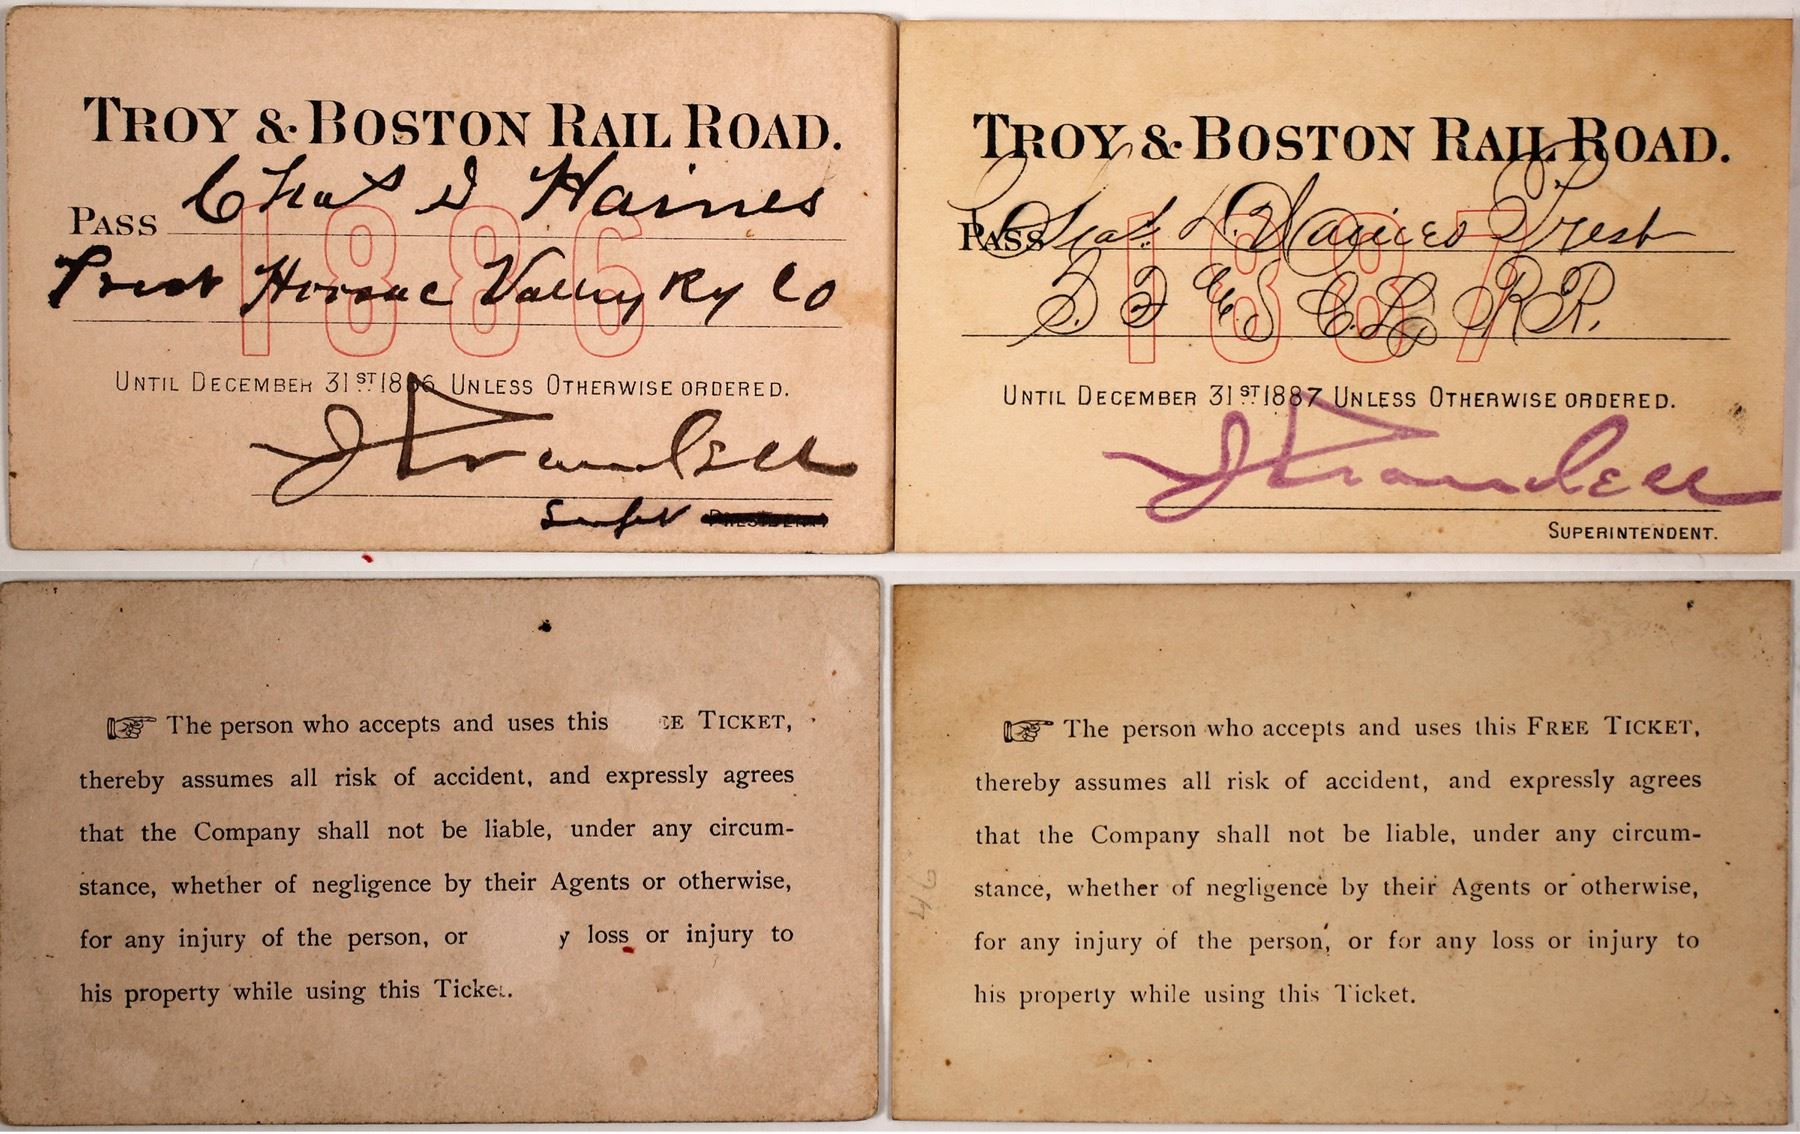 TROY & BOSTON RAIL ROAD.
PASS Chas D Haines
Prest Hoosac Valley Ry Co
1886
UNTIL DECEMBER 31ST 1886 UNLESS OTHERWISE ORDERED.
J Crandell
Supt PRESIDENT
TROY & BOSTON RAIL ROAD.
PASS Chas. D. Haines Prest
R.R.
1887
UNTIL DECEMBER 31ST 1887 UNLESS OTHERWISE ORDERED.
J Crandell
SUPERINTENDENT.
☞ The person who accepts and uses this EE TICKET,
thereby assumes all risk of accident, and expressly agrees
that the Company shall not be liable, under any circum-
stance, whether of negligence by their Agents or otherwise,
for any injury of the person, or y loss or injury to
his property while using this Ticket.
☞ The person who accepts and uses this FREE TICKET,
thereby assumes all risk of accident, and expressly agrees
that the Company shall not be liable, under any circum-
stance, whether of negligence by their Agents or otherwise,
for any injury of the person, or for any loss or injury to
his property while using this Ticket.
46